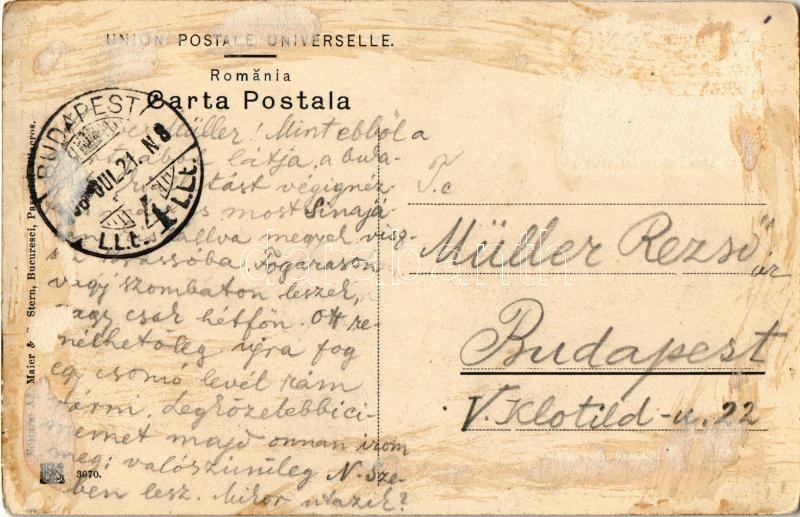 UNIUNI POSTALE UNIVERSELLE.
România
Carta Postala
BUDAPEST
JUL. 21. N 8
4 I.Lt. I.Lt.
Müller! Mint ebből a
látja, a buka-
végignéz-
most Sinajá-
megyek visz-
Brassóba. Fogarason
vagy szombaton leszek,
vagy csak hétfőn. Ott re-
mélhetőleg újra fog
egy csomó levél rám
várni. Legközelebbi cí-
memet majd onnan írom
meg; valószinüleg N.-Sze-
ben lesz. Mikor utazik?
T. c
Müller Rezső
úr
Budapest
V. Klotild-u. 22
Maier & Stern, Bucuresci,
3070.
darabanth